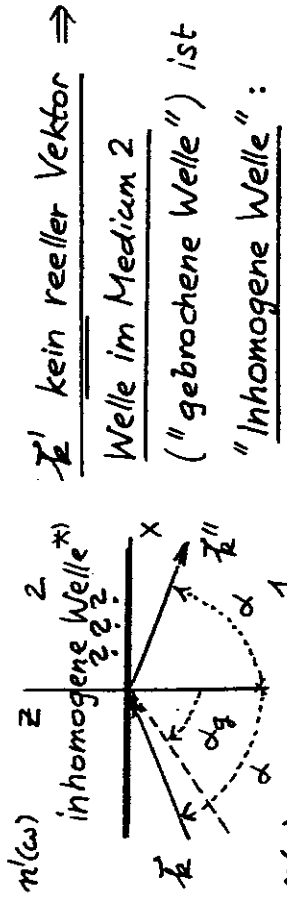 n'(ω)
z 2
inhomogene Welle*)
? ? ?
x
k⃗
k⃗''
α_g
α
α
1
k⃗' kein reeller Vektor ⇒
Welle im Medium 2
("gebrochene Welle") ist
"Inhomogene Welle":